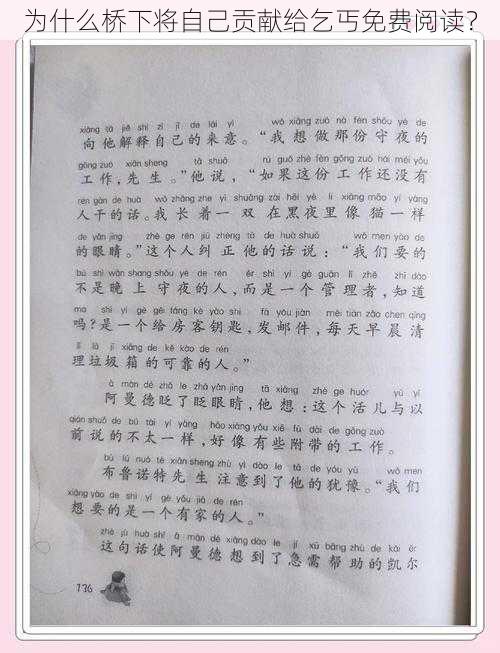 为什么桥下将自己贡献给乞丐免费阅读?
xiàng tā jiě shì zì jǐ de lái yì wǒ xiǎng zuò nà fèn shǒu yè de
向他解释自己的来意。“我想做那份守夜的
gōng zuò xiān sheng tā shuō rú guǒ zhè fèn gōng zuò hái méi yǒu
工作,先生。”他说,“如果这份工作还没有
rén gàn de huà wǒ zhǎng zhe yì shuāng zài hēi yè lǐ xiàng māo yí yàng
人干的话。我长着一双在黑夜里像猫一样
de yǎn jing zhè ge rén jiū zhèng tā de huà shuō wǒ men yào de
的眼睛。”这个人纠正他的话说:“我们要的
bú shì wǎn shang shǒu yè de rén ér shì yí gè guǎn lǐ zhě zhī dào
不是晚上守夜的人,而是一个管理者,知道
ma shì yí gè gěi fáng kè yào shi fā yóu jiàn měi tiān zǎo chen qīng
吗?是一个给房客钥匙,发邮件,每天早晨清
lǐ lā jī xiāng de kě kào de rén
理垃圾箱的可靠的人。”
ā màn dé zhǎ le zhǎ yǎn jing tā xiǎng zhè ge huór yǔ yǐ
阿曼德眨了眨眼睛,他想:这个活儿与以
qián shuō de bú tài yí yàng hǎo xiàng yǒu xiē fù dài de gōng zuò
前说的不太一样,好像有些附带的工作。
bù lǔ nuò tè xiān sheng zhù yì dào le tā de yóu yù wǒ men
布鲁诺特先生注意到了他的犹豫。“我们
xiǎng yào de shì yí gè yǒu jiā de rén
想要的是一个有家的人。”
zhè jù huà shǐ ā màn dé xiǎng dào le jí xū bāng zhù de kǎi ěr
这句话使阿曼德想到了急需帮助的凯尔
136